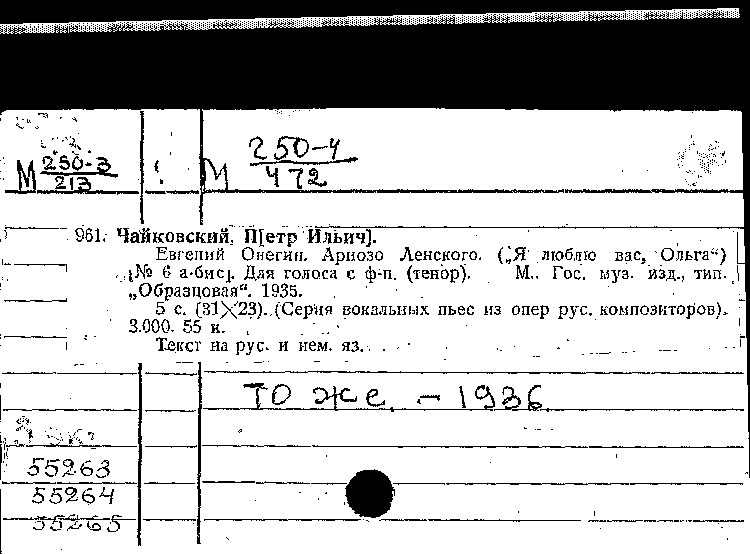 М 250-3
213
М 250-4
472
961. Чайковский, П[етр Ильич].
Евгений Онегин. Ариозо Ленского. („Я люблю вас, Ольга“)
[№ 6 а-бис]. Для голоса с ф-п. (тенор). М., Гос. муз. изд., тип.
„Образцовая“. 1935.
5 с. (31×23). (Серия вокальных пьес из опер рус. композиторов).
3.000. 55 к.
Текст на рус. и нем. яз.
ТО же. – 1936
55263
55264
55265